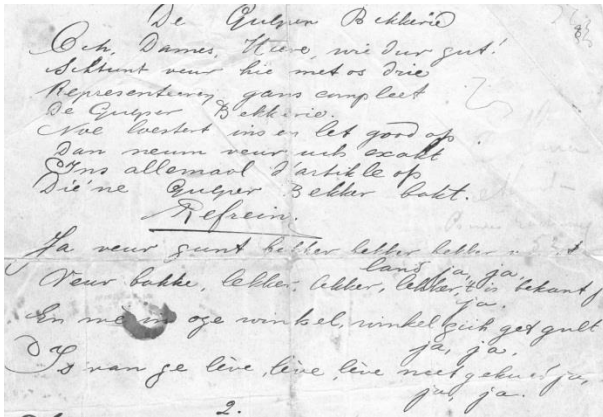 De Gulper Bekkerie
Och, Dames, Hiere, wie dur gut!
Schtunt veur hie met os drie
Representieren gans compleet
De Gulper Bekkerie.
Noe loestert ins en let good op
Dan neum veur uch exakt
Ins allemaol d'artikle op
Die 'ne Gulper Bekker bakt.
Refrein.
Ja veur zunt bekker bekker bekker
land ja, ja,
Veur bakke, lekker, lekker, lekker, 't is bekant
ja.
En me in oze winkel, winkel zich get gult
ja, ja,
Is van ge lève, lève, lève neet ja,
ja, ja.
2.